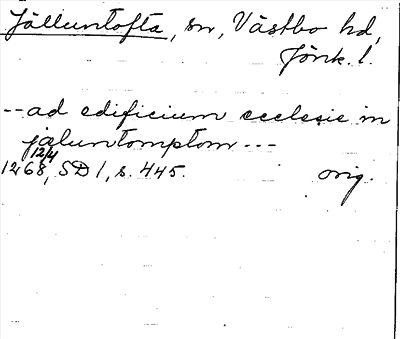 Jälluntofta, sn, Västbo hd,
Jönk. l.
-- ad edificium ecclesie in
jaluntomptom ---
12/4
1268, SD 1, s. 445. orig.